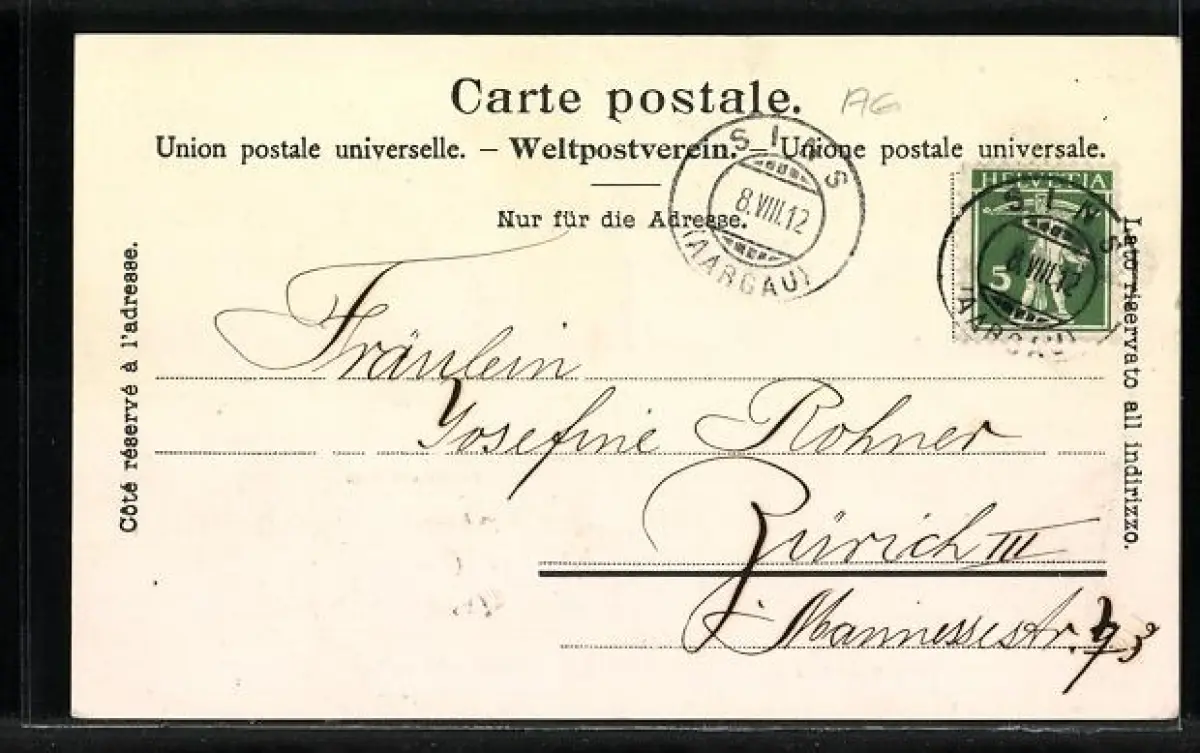 Carte postale.
AG
Union postale universelle. – Weltpostverein. – Unione postale universale.
Nur für die Adresse.
SINS
8.VIII.12
(AARGAU)
HELVETIA
5
SINS
8.VIII.12
(AARGAU)
Côté réservé à l'adresse.
Lato riservato all indirizzo.
Fräulein
Josefine Rohner
Zürich III
Mannessestr.